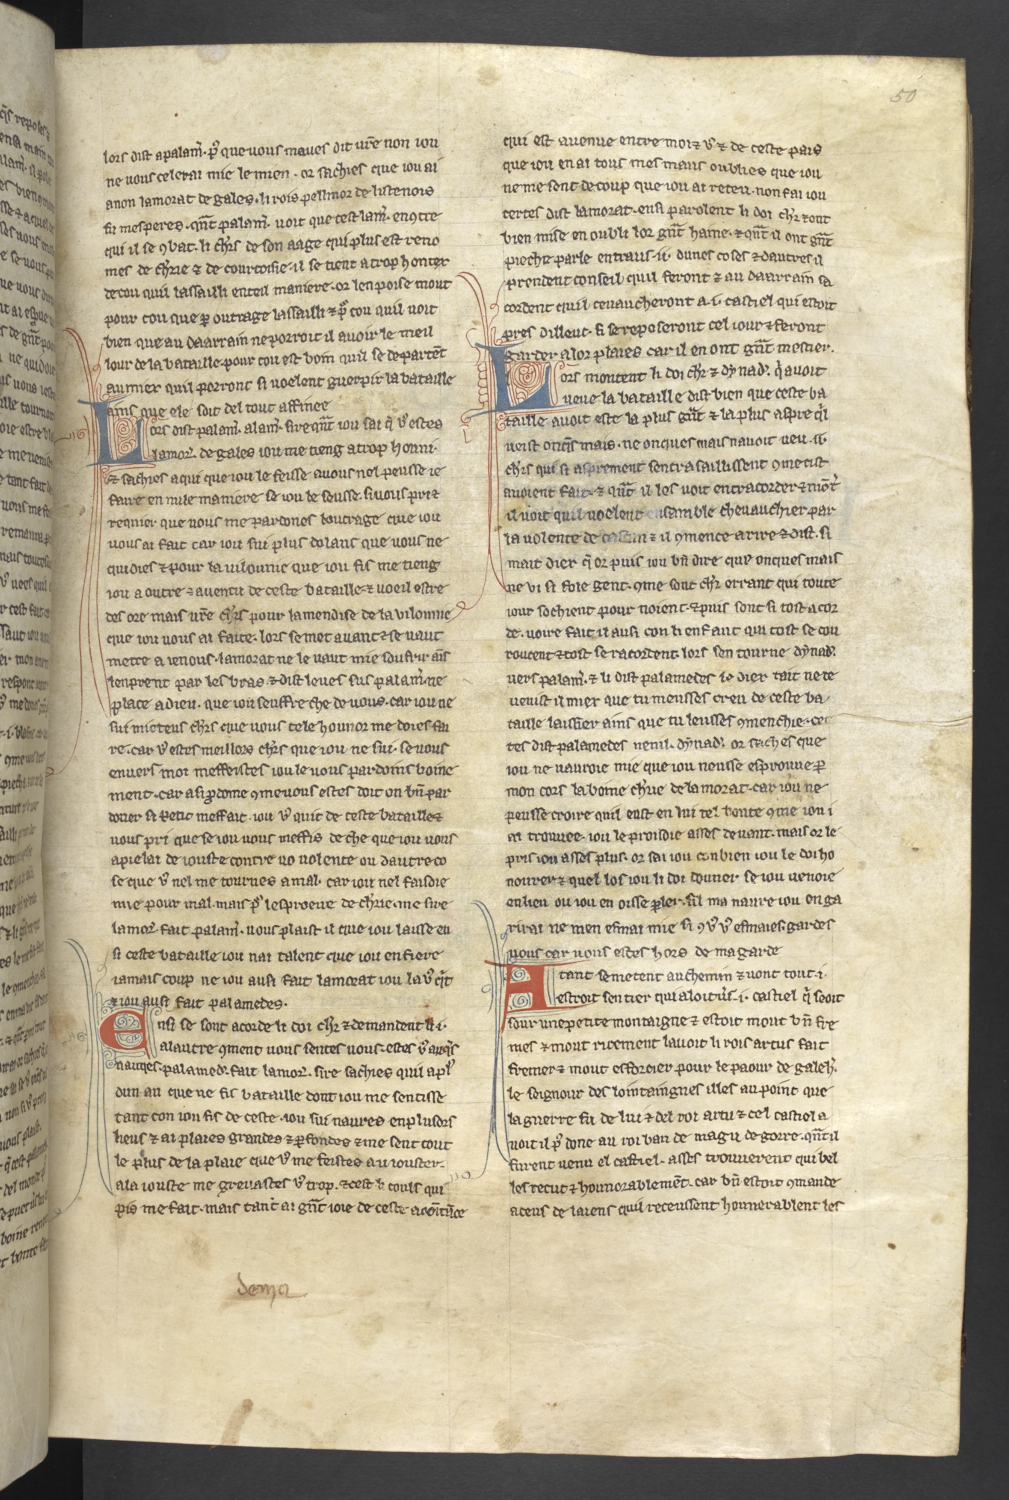 50
lors dist a palam̃. pͦ que vous maves dit vr̃e non iou
ne vous celerai mie le mien. or sachies que iou ai
a non lamorat de gales. li rois pellinor de listenois
fu mes peres. qn̄t palam̃. voit que cest lam̃. encōtre
qui il se ꝯbat. li chr̃s de son aage qui plus est reno
mes de chr̃ie ⁊ de courtoisie. il se tient a trop honter
de cou quil lassailli en tel maniere. or len poise mout
pour cou que ꝑ outrage lassailli ⁊ pͦ cou quil voit
bien que au daarrain ne porroit il avoir le meil
lour de la bataille. pour cou est boin quil se departēt
au mier quil porront si voelent guerpir la bataille
ains que ele soit del tout affinee
Lors dist palam̃. a lam̃. sire qn̄t iou sai q̄ vͦ estes
lamor̃. de gales iou me tieng a trop honni.
⁊ sachies a qui que iou le feisse a vous nel peusse ie
faire en nule maniere se iou le seusse. si vous pri ⁊
requier que vous me pardones loutrage que iou
vous ai fait car iou sui plus dolans que vous ne
quidies ⁊ pour la vilounie que iou fis me tieng
iou a outre ⁊ a ventu de ceste bataille. ⁊ voeil estre
des ore mais vr̃e chr̃s pour lamendise de la vilonnie
que iou vous ai faite. lors se met avant ⁊ se vaut
metre a ienous. lamorat ne le vaut mie soufrir ais̃
lenprent par les bras. ⁊ dist leves sus palam̃. ne
place a dieu. que iou seuffre che de vous. car iou ne
sui mieteus chr̃s que vous tele hounor me doies fai
re. car vͦ estes meillors chr̃s que iou ne sui. se vous
envers moi meffeistes iou le vous pardoins boine
ment. car a si pͦdome ꝯme vous estes doit on bn̄ par
douer si petit meffait. iou vͦ quit de ceste bataille ⁊
vous pri que se iou vous meffis de che que iou vous
apielai de iouste contre vo volente ou dautre co
se que vͦ nel me tournes a mal. car iou nel faisoie
mie pour mal. mais pͦ lesproeve de chr̃ie. me sire
lamor̃. fait palam̃. vous plaist il que iou laisse en
si ceste bataille iou nai talent que iou en fiere
iamais coup ne iou ausi fait lamorat iou la vͦ qͥt
⁊ iou ausi fait palamedes.
Ensi se sont acorde li doi chr̃ ⁊ demandent li .i.
a lautre ꝯment vous sentes vous. estes vͦ auqͤs
navres. palamed̃. fait lamor̃. sire sachies quil a pͦs
dun an que ne fis bataille dont iou me sentisse
tant con iou fis de ceste. iou sui navres en plusors
lieus ⁊ ai plaies grandes ⁊ ꝑfondes ⁊ me sent tout
le plus de la plaie que vͦ me feistes au iouster.
a la iouste me grevastes vͦ trop. ⁊ cest li couls qui
pis me fait. mais tant ai gn̄t ioie de ceste acoītāce
qui est avenue entre moi ⁊ vͦ ⁊ de ceste pais
que iou en ai tous mes maus oublies que iou
ne me sent de coup que iou ai receu. non fai iou
certes dist lamorat. ensi parolent li doi chr̃ ⁊ ont
bien mise en oubli lor gn̄t haine. ⁊ qn̄t il ont gn̄t
pieche parle entraus .ii. dunes coses ⁊ dautres il
prendent conseil quil feront ⁊ au daarrain sa
cordent quil cevaucheront a .i. castiel qui estoit
pres dilleuc. si se reposeront cel iour ⁊ feront
garder a lor plaies car il en ont gn̄t mestier.
Lors montent li doi chr̃ ⁊ dynad̃. q̄ avoit
veue la bataille dist bien que ceste ba
taille avoit este la plus gn̄t ⁊ la plus aspre qͥl
veist onqͤs mais. ne onques mais navoit veu .ii.
chr̃s qui si asprement sentrasaillissent ꝯme cist
avoient fait. ⁊ qn̄t il les voit entracorder ⁊ mōt̃
il voit quil voelent ensamble chevauchier par
la volente de ⁊ il ꝯmence a rire ⁊ dist. si
mait dier q̄ or puis iou bn̄ dire quy onques mais
ne vi si foie gent. ꝯme sont chr̃ errant qui toute
iour sochient pour noient. ⁊ puis sont si tost acor
de. voire fait il ausi con li enfant qui tost se cou
roucent ⁊ tost se racordent. lors sen tourne dynad̃.
vers palam̃. ⁊ li dist palamedes se dier tait ne te
venist il mier que tu meusses creu de ceste ba
taille laissier ains que tu leusses ꝯmenchie. cer
tes dist palamedes nenil. dynad̃. or saches que
iou ne vauroie mie que iou neusse esprouve ꝑ
mon cors la boine chr̃ie de lamorat. car iou ne
peusse croire quil eust en lui tel bonte ꝯme iou i
ai trouvee. iou le proisoie asses devant. mais or le
pris iou asses plus. or sai iou conbien iou le doi ho
nourer ⁊ quel los iou li doi douner se iou venoie
en lieu ou iou en oisse ꝑler. sil ma navre iou en ga
rirai ne men esmai mie si ꝯ vͦ vͦ esmaies. gardes
vous car vous estes hors de ma garde
Atant se metent au chemin ⁊ vont tout .i.
estroit sentier qui aloit vͦs .i. castiel q̄ seoit
sour une petite montaigne ⁊ estoit mout bn̄ fre
mes ⁊ mout ricement lavoit li rois artus fait
fremer ⁊ mout esforcier pour le paour de galeh̃.
le seignour des lointaingnes illes au point que
la guerre fu de lui ⁊ del roi artu ⁊ cel castiel a
voit il pͦ done au roi ban de magu de gorre. qn̄t il
furent venu el castiel. asses trouverent qui bel
les recut ⁊ hounorablemēt. car bn̄ estoit ꝯmande
a ceus de laiens quil receussent hounerablent les